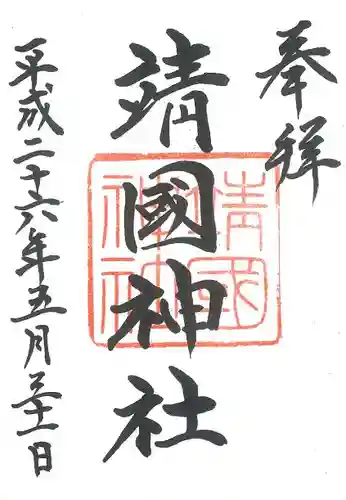 奉拝
靖國神社
靖國神社
平成二十六年五月三十一日